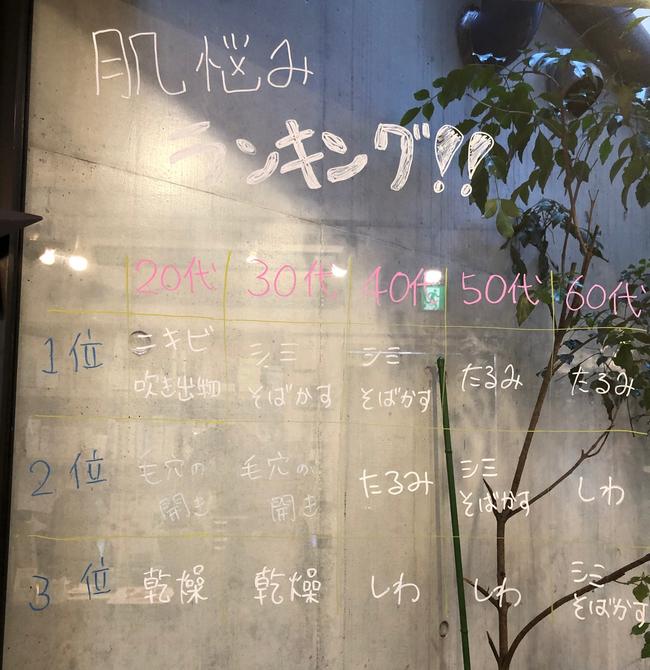 肌悩み
ランキング!!
20代 30代 40代 50代 60代
1位 ニキビ 吹き出物 シミ そばかす シミ そばかす たるみ たるみ
2位 毛穴の 開き 毛穴の 開き たるみ シミ そばかす しわ
3位 乾燥 乾燥 しわ しわ シミ そばかす